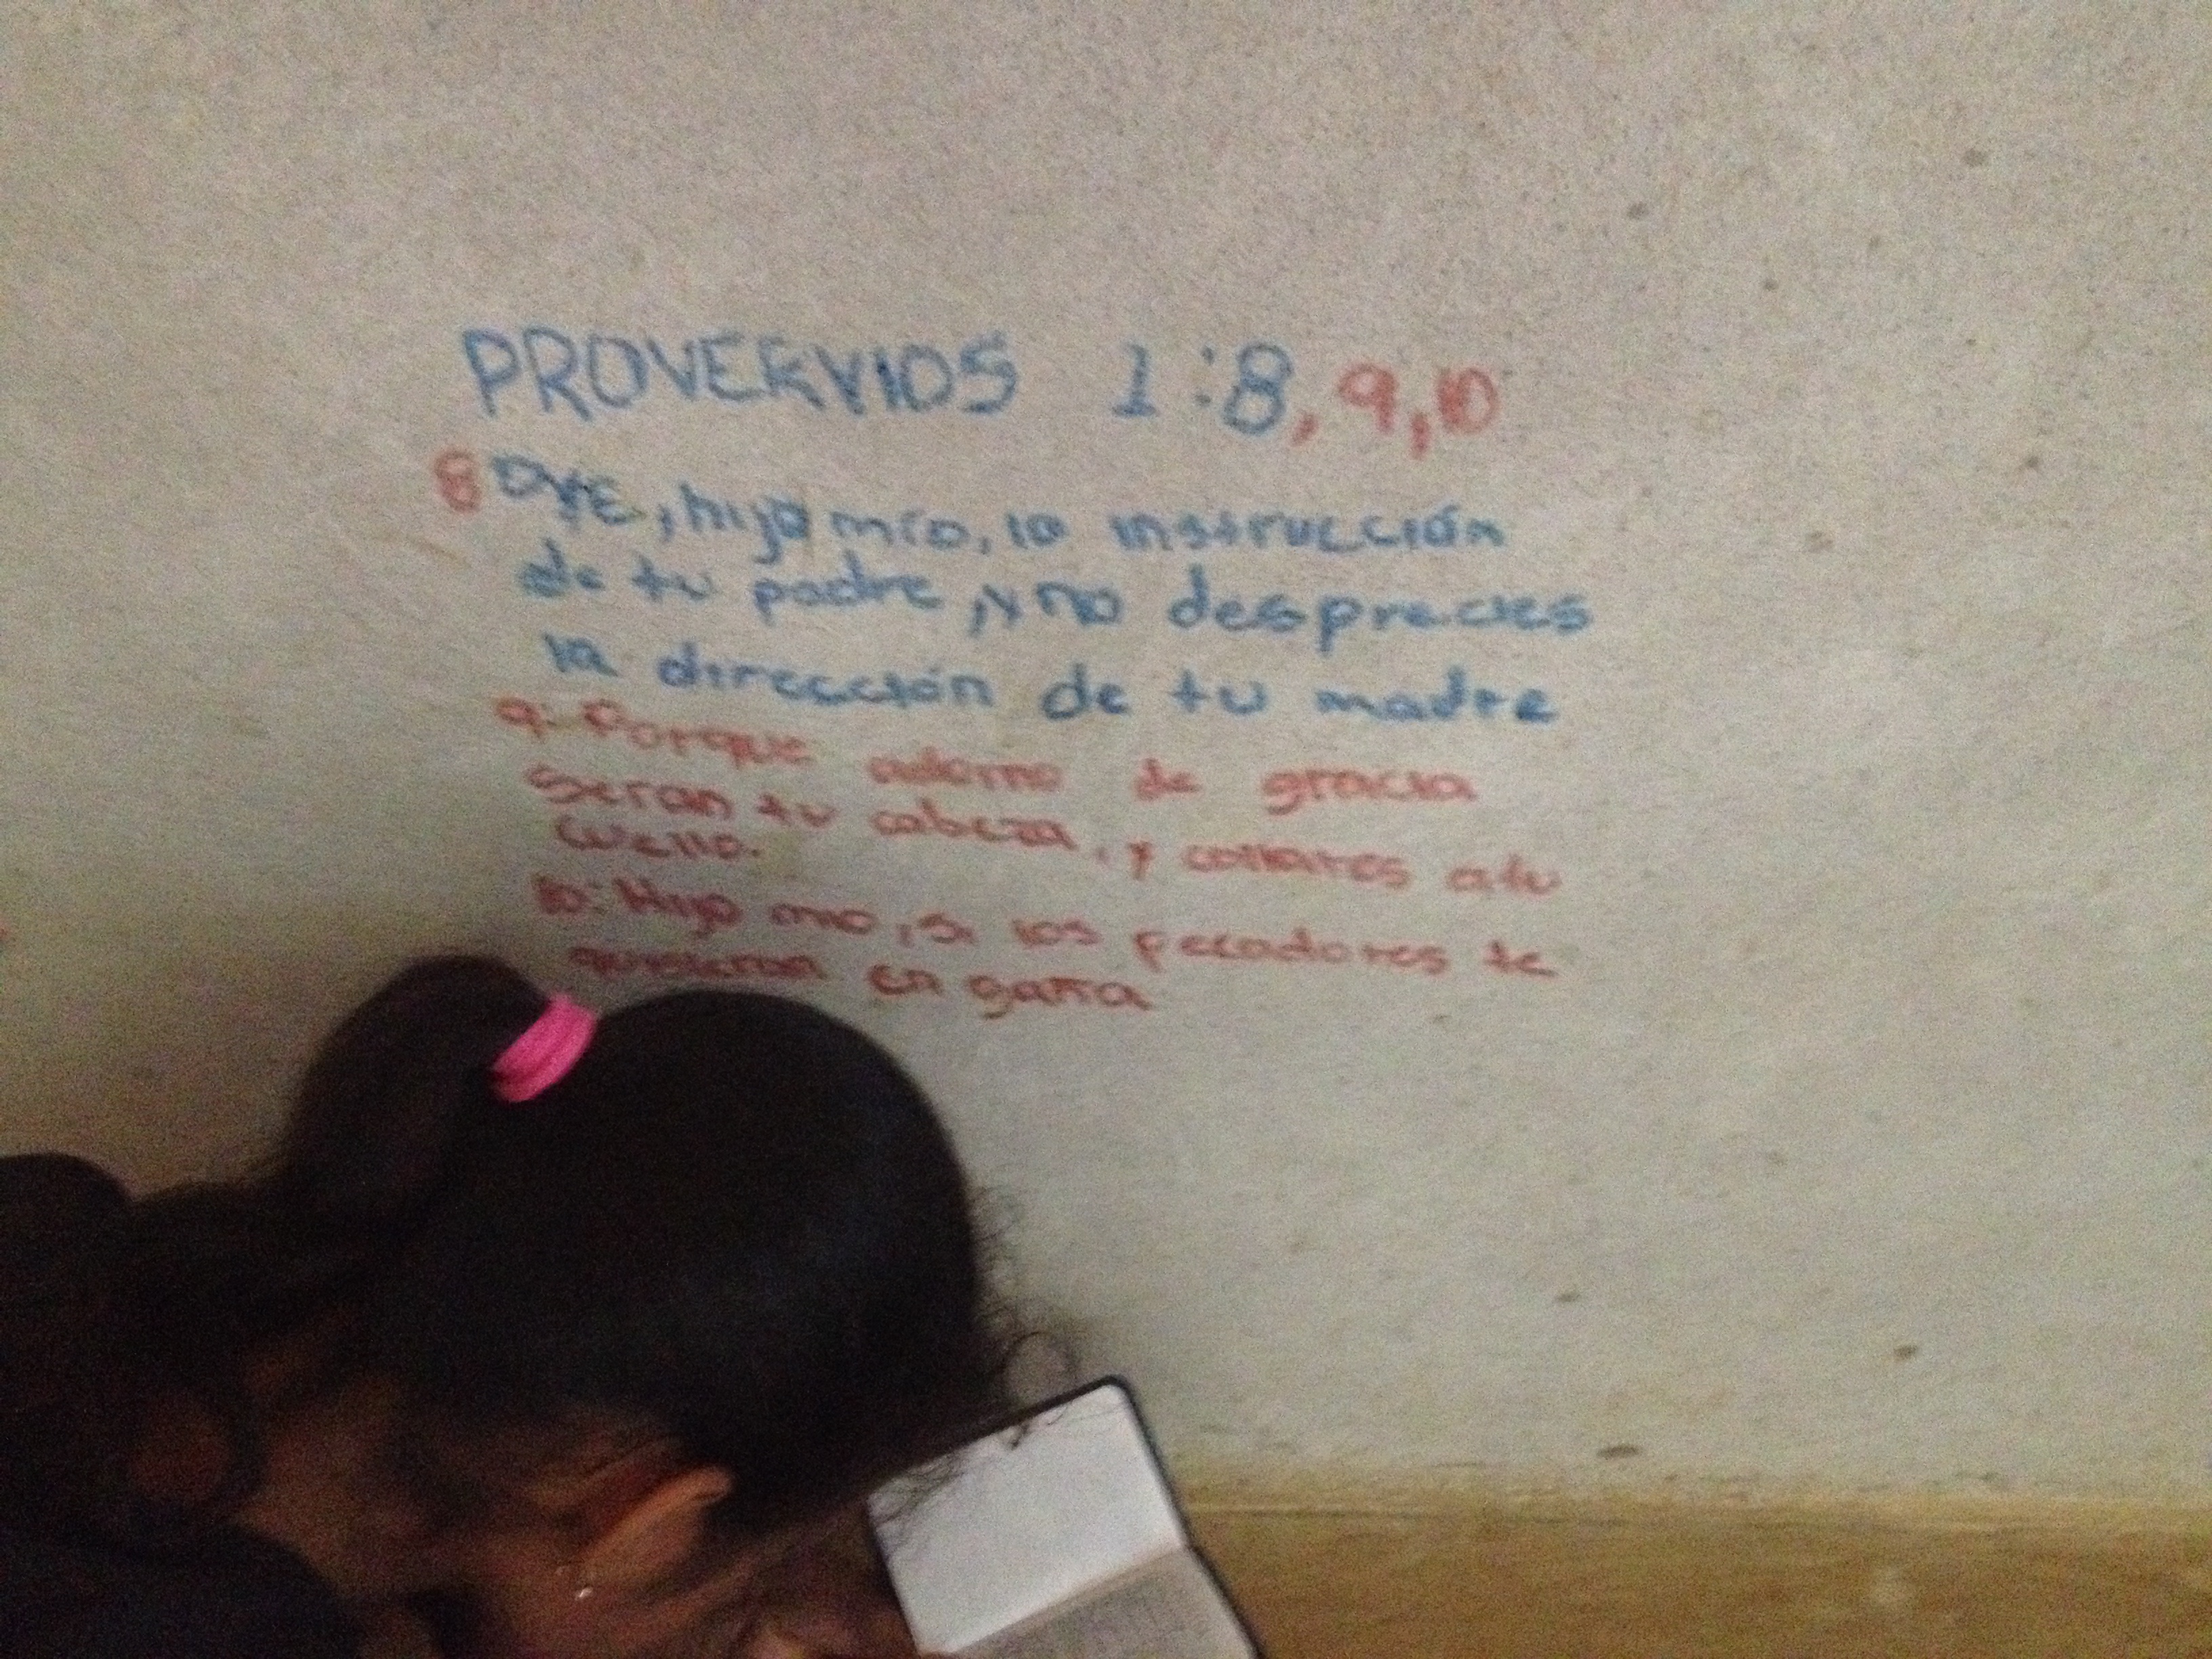 PROVERVIOS 1:8,9,10
8 OYE, hijo mío, la instrucción
de tu padre, y no desprecies
la dirección de tu madre
9: Porque adorno de gracia
seran tu cabeza, y collares a tu
Cuello.
10: Hijo mio, si los pecadores te
quisieran en gaña